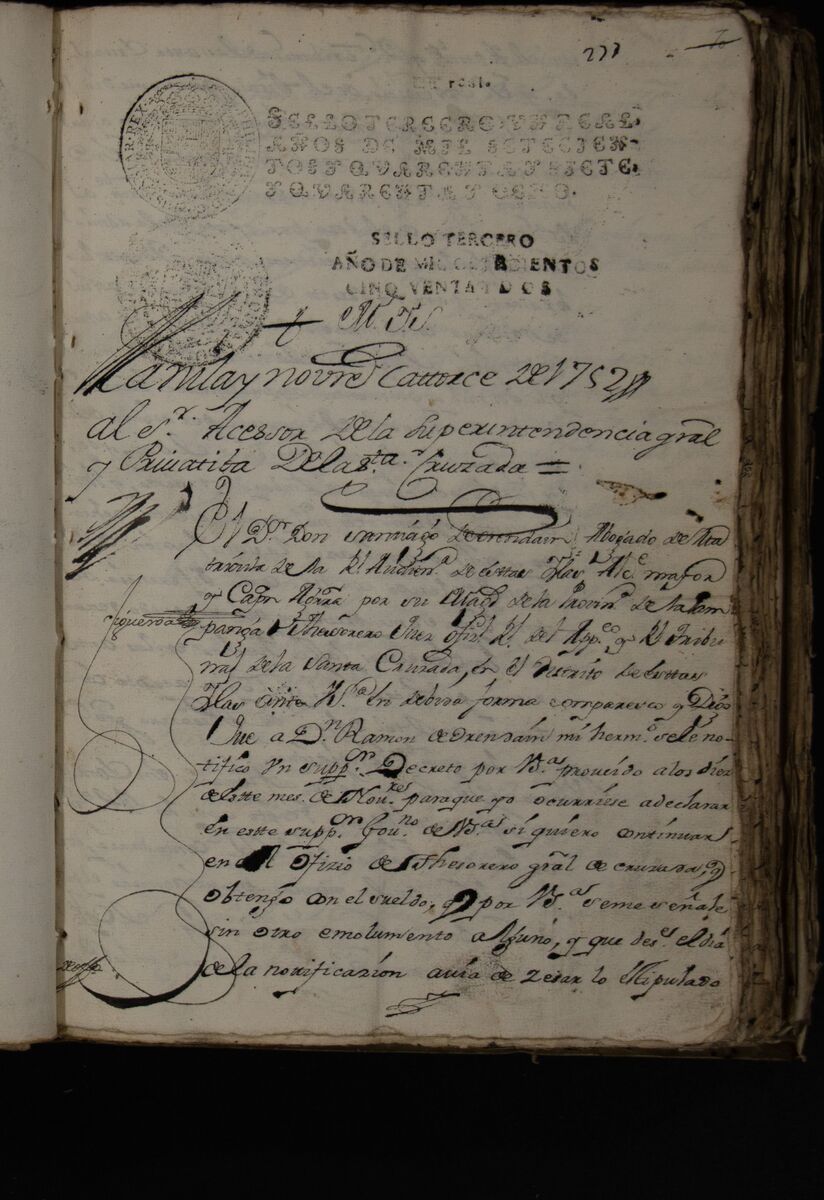 277
Un real.
SELLO TERCERO, UN REAL,
AÑOS DE MIL SETECIEN-
TOS Y QVARENTA Y SIETE,
Y QVARENTA Y OCHO.
SELLO TERCERO
AÑO DE MIL SETECIENTOS
CINQVENTA Y DOS
M. Y. S.
Manila y novre Cattorce de 1752
al sr. Acessor de la Superintendencia gral
y Privatiba de la sta. Cruzada =
El Dr. Don Santiago de orendain Abogado de la
de la Rl Audiena. de esttas Yslas Alce. mayor
y Capn. Aguerra por su Magd. de la Provina. de la Pam
panga Thesorero Juez ofizl Rl. del Appco. y Rl Tribu
nal de la Santa Cruzada, en el Distrito de esttas
Yslas ante VSa. en debida forma comparesco y Digo
Que a Dn Ramon de Orendain mi hermo. se le no-
tifico un suppor. Decreto por VSa. proveido a los diez
de estte mes de Novres. para que yo ocurriese a declarar
en estte suppor. Govno. de VSa. si quiero continuar
en el ofizio de Thesorero gral de cruzada, q
obtengo con el sueldo, q por VSa. se me señale
sin otro emolumento alguno, y que desde el dia
de la notificazion avia de zesar lo estipulado
Figueroa